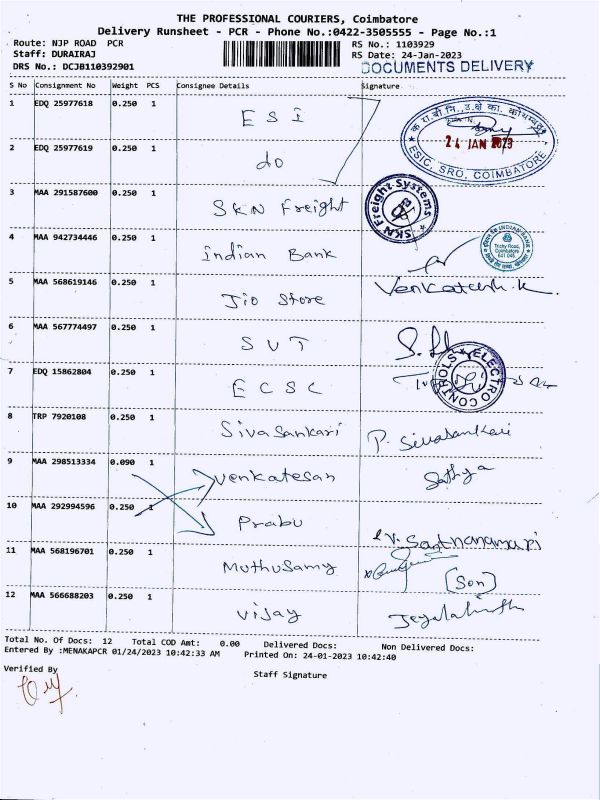 THE PROFESSIONAL COURIERS, Coimbatore
Delivery Runsheet - PCR - Phone No.:0422-3505555 - Page No.:1
Route: NJP ROAD PCR RS No.: 1103929
Staff: DURAIRAJ RS Date: 24-Jan-2023
DRS No.: DCJB110392901 DOCUMENTS DELIVERY
S No Consignment No Weight PCS Consignee Details Signature
1 EDQ 25977618 0.250 1 ESI
24 JAN 2023
ESIC, SRO, COIMBATORE
2 EDQ 25977619 0.250 1 do
3 MAA 291587600 0.250 1 SKN Freight
SKN Freight Systems
4 MAA 942734446 0.250 1 Indian Bank
INDIAN BANK
Trichy Road,
Coimbatore
641 045.
5 MAA 568619146 0.250 1 Jio Store Venkatesh.K.
6 MAA 567774497 0.250 1 SVT
7 EDQ 15862804 0.250 1 ECSC
ELECTRO CONTROLS
8 TRP 7920108 0.250 1 Siva Sankari P. Sivasankari
9 MAA 298513334 0.090 1 Venkatesan Sathya
10 MAA 292994596 0.250 1 Prabu
11 MAA 568196701 0.250 1 Muthusamy (Son)
12 MAA 566688203 0.250 1 Vijay
Total No. Of Docs: 12 Total COD Amt: 0.00 Delivered Docs: Non Delivered Docs:
Entered By :MENAKAPCR 01/24/2023 10:42:33 AM Printed On: 24-01-2023 10:42:40
Verified By Staff Signature